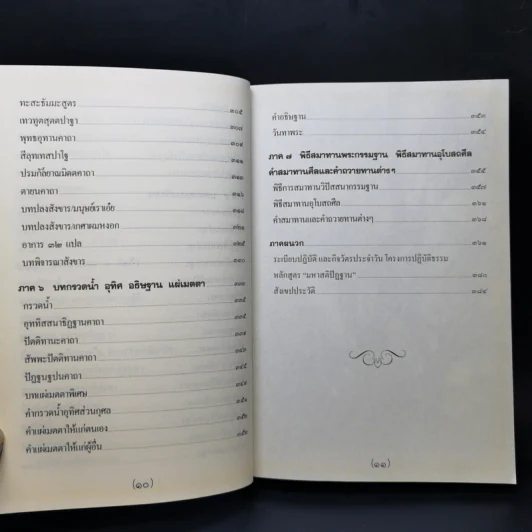 ทะสะธัมมะสูตร ๓๐๕
เทวทูตสุตตปาฐา ๓๐๗
พุทธอุทานคาถา ๓๑๑
สีลุทเทสปาโฐ ๓๑๑
ปรมกัลยาณมิตตคาถา
ตายนคาถา ๓๑๖
บทปลงสังขาร/มนุษย์เราเอ๋ย ๓๑๘
บทปลงสังขาร/เกศาผมหงอก
อาการ ๓๒ แปล ๓๒๕
บทพิจารณาสังขาร
ภาค ๖ บทกรวดน้ำ อุทิศ อธิษฐาน แผ่เมตตา
กรวดน้ำ
อุททิสสนาธิฏฐานคาถา
ปัตติทานะคาถา
สัพพะปัตติทานคาถา
ปัฏฐนฐปนคาถา ๓๔๕
บทแผ่เมตตาพิเศษ
คำกรวดน้ำอุทิศส่วนกุศล
คำแผ่เมตตาให้แก่ตนเอง
คำแผ่เมตตาให้แก่ผู้อื่น
(๑๐)
คำอธิษฐาน ๓๕๓
วันทาพระ ๓๕๔
ภาค ๗ พิธีสมาทานพระกรรมฐาน พิธีสมาทานอุโบสถศีล
คำสมาทานศีลและคำถวายทานต่างๆ ๓๕๕
พิธีการสมาทานวิปัสสนากรรมฐาน ๓๕๗
พิธีสมาทานอุโบสถศีล ๓๖๑
คำสมาทานและคำถวายทานต่างๆ ๓๖๘
ภาคผนวก
ระเบียบปฏิบัติ และกิจวัตรประจำวัน โครงการปฏิบัติธรรม
หลักสูตร "มหาสติปัฏฐาน" ๓๘๐
สังเขปประวัติ ๓๘๔
(๑๑)